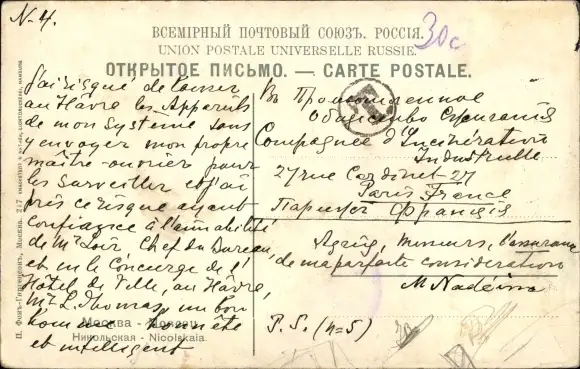 N. 4.
ВСЕМІРНЫЙ ПОЧТОВЫЙ СОЮЗЪ. РОССІЯ.
UNION POSTALE UNIVERSELLE RUSSIE.
30c
ОТКРЫТОЕ ПИСЬМО. — CARTE POSTALE.
J'ai risqué de laisser
au Hâvre les Appareils
de mon système sans
y envoyer mon propre
maître-ouvrier pour
les surveiller et j'ai
pris ce risque ayant
confiance à l'amabilité
de Mr Loir Chef du Bureau,
et en le Concierge de l'
Hôtel de Ville, au Hâvre,
Mr L. Thomas, un bon
homme honnête
et intelligent
Въ Промышленное
Общество Сжиганія
Compagnie d'Incinération
Industrielle
27 rue Cordonet 27
Paris France
Парижъ Франція
Agréez, Messieurs, l'assurance
de ma parfaite considération
M Nadeine
P. S. (n=5)
Москва - Moscou
Никольская - Nicolskaia.
П. Фонъ-Гиргенсонъ, Москва. 247